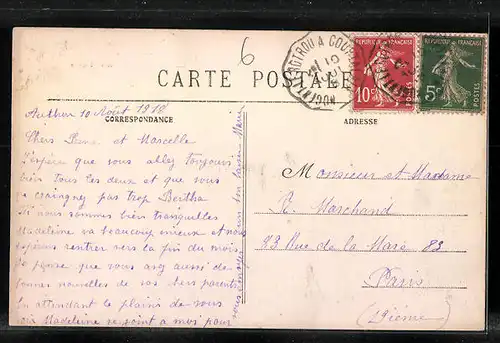 6
NOGENT-LE-ROTROU A COURT
RÉPUBLIQUE FRANÇAISE
10c POSTES
RÉPUBLIQUE FRANÇAISE
5c POSTES
CARTE POSTALE
CORRESPONDANCE
ADRESSE
Authon 10 Août 1918
Chers et Marcelle
J'espère que vous allez toujours
bien tous les deux et que vous
ne craignez pas trop Bertha
Ici nous sommes bien tranquilles
Madeleine va beaucoup mieux et nous
espérons rentrer vers la fin du mois
Je pense que vous avez aussi de
bonnes nouvelles de vos chers parents
En attendant le plaisir de vous
voir Madeleine se joint à moi pour
vous envoyer un bon baiser
Monsieur et Madame
R. Marchand
83 Rue de la Mare 83
Paris